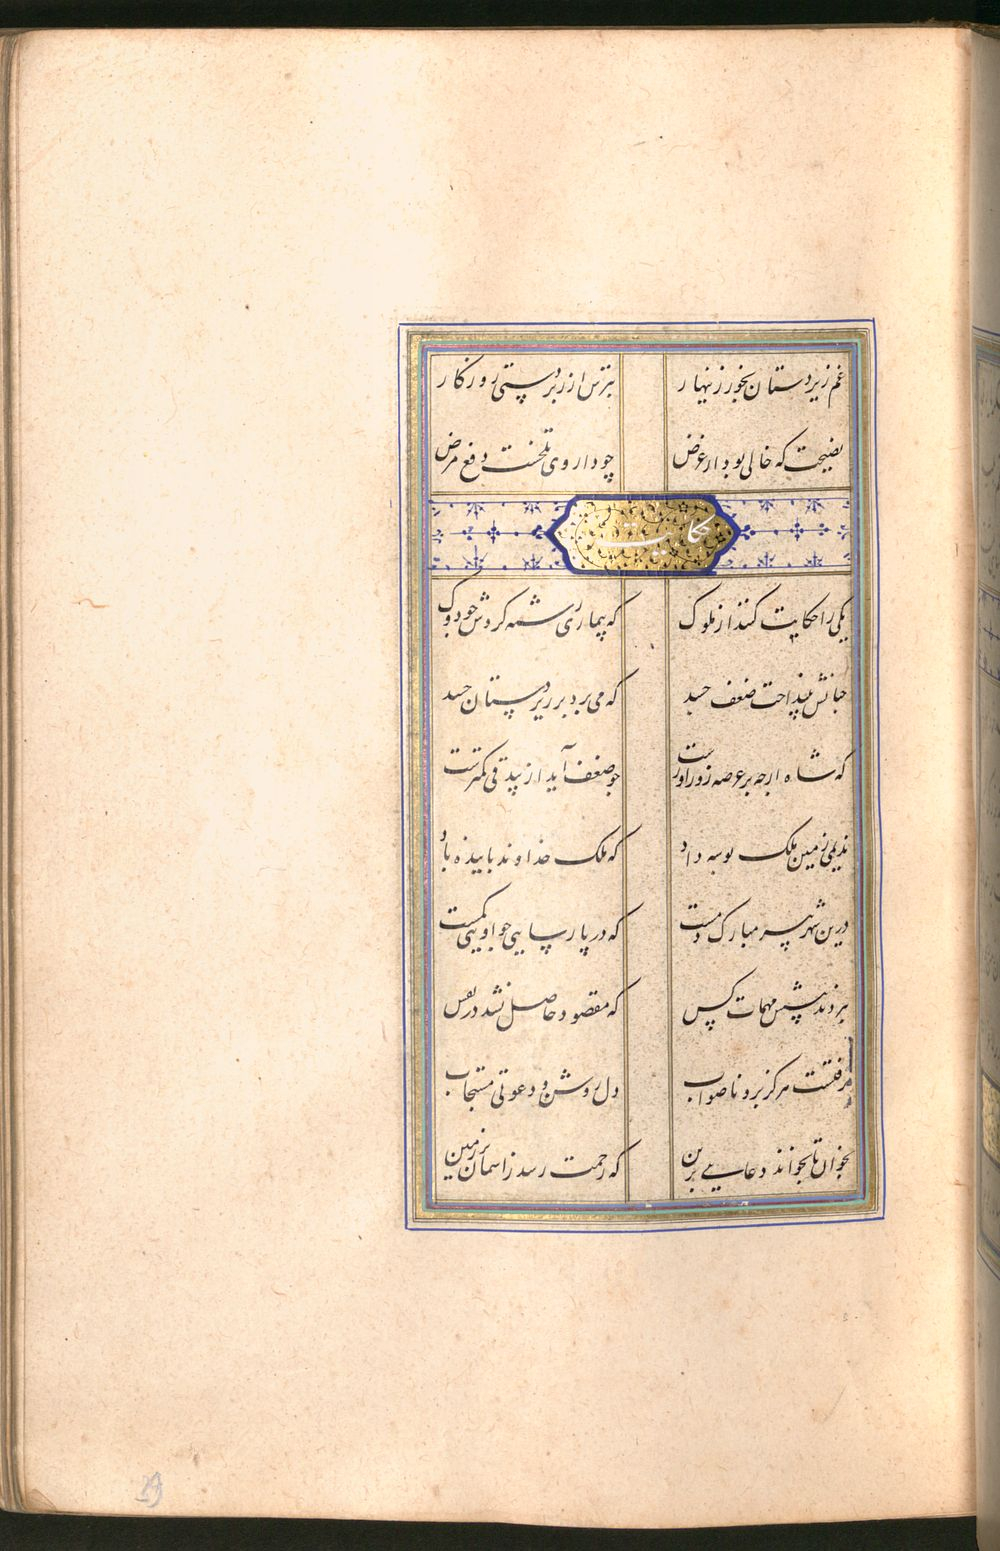 غم زیردستان بخور زینهار بترس از زبردستی روزکار
نصیحت که خالی بود از غرض چو داروی تلخست دفع مرض
حکایت
یکی را حکایت کنند از ملوک که بیماری رشته کردش چو دوک
چنانش بینداخت ضعف جسد که می برد بر زیردستان حسد
که شاه ارچه بر عرصه زور اورست چو ضعف آید از بیدقی کمترست
ندیمی زمین ملک بوسه داد که ملک خداوند پاینده باد
درین شهر پیر مبارک دمست که در پارسایی چو او یکی کمست
بردند پیش مهمات کس که مقصود حاصل نشد در نفس
نرفتست هرکز برو ناصواب دل روشن و دعوتی مستجاب
بخوان تا بخواند دعایی برین که رحمت رسد زاسمان بر زمین